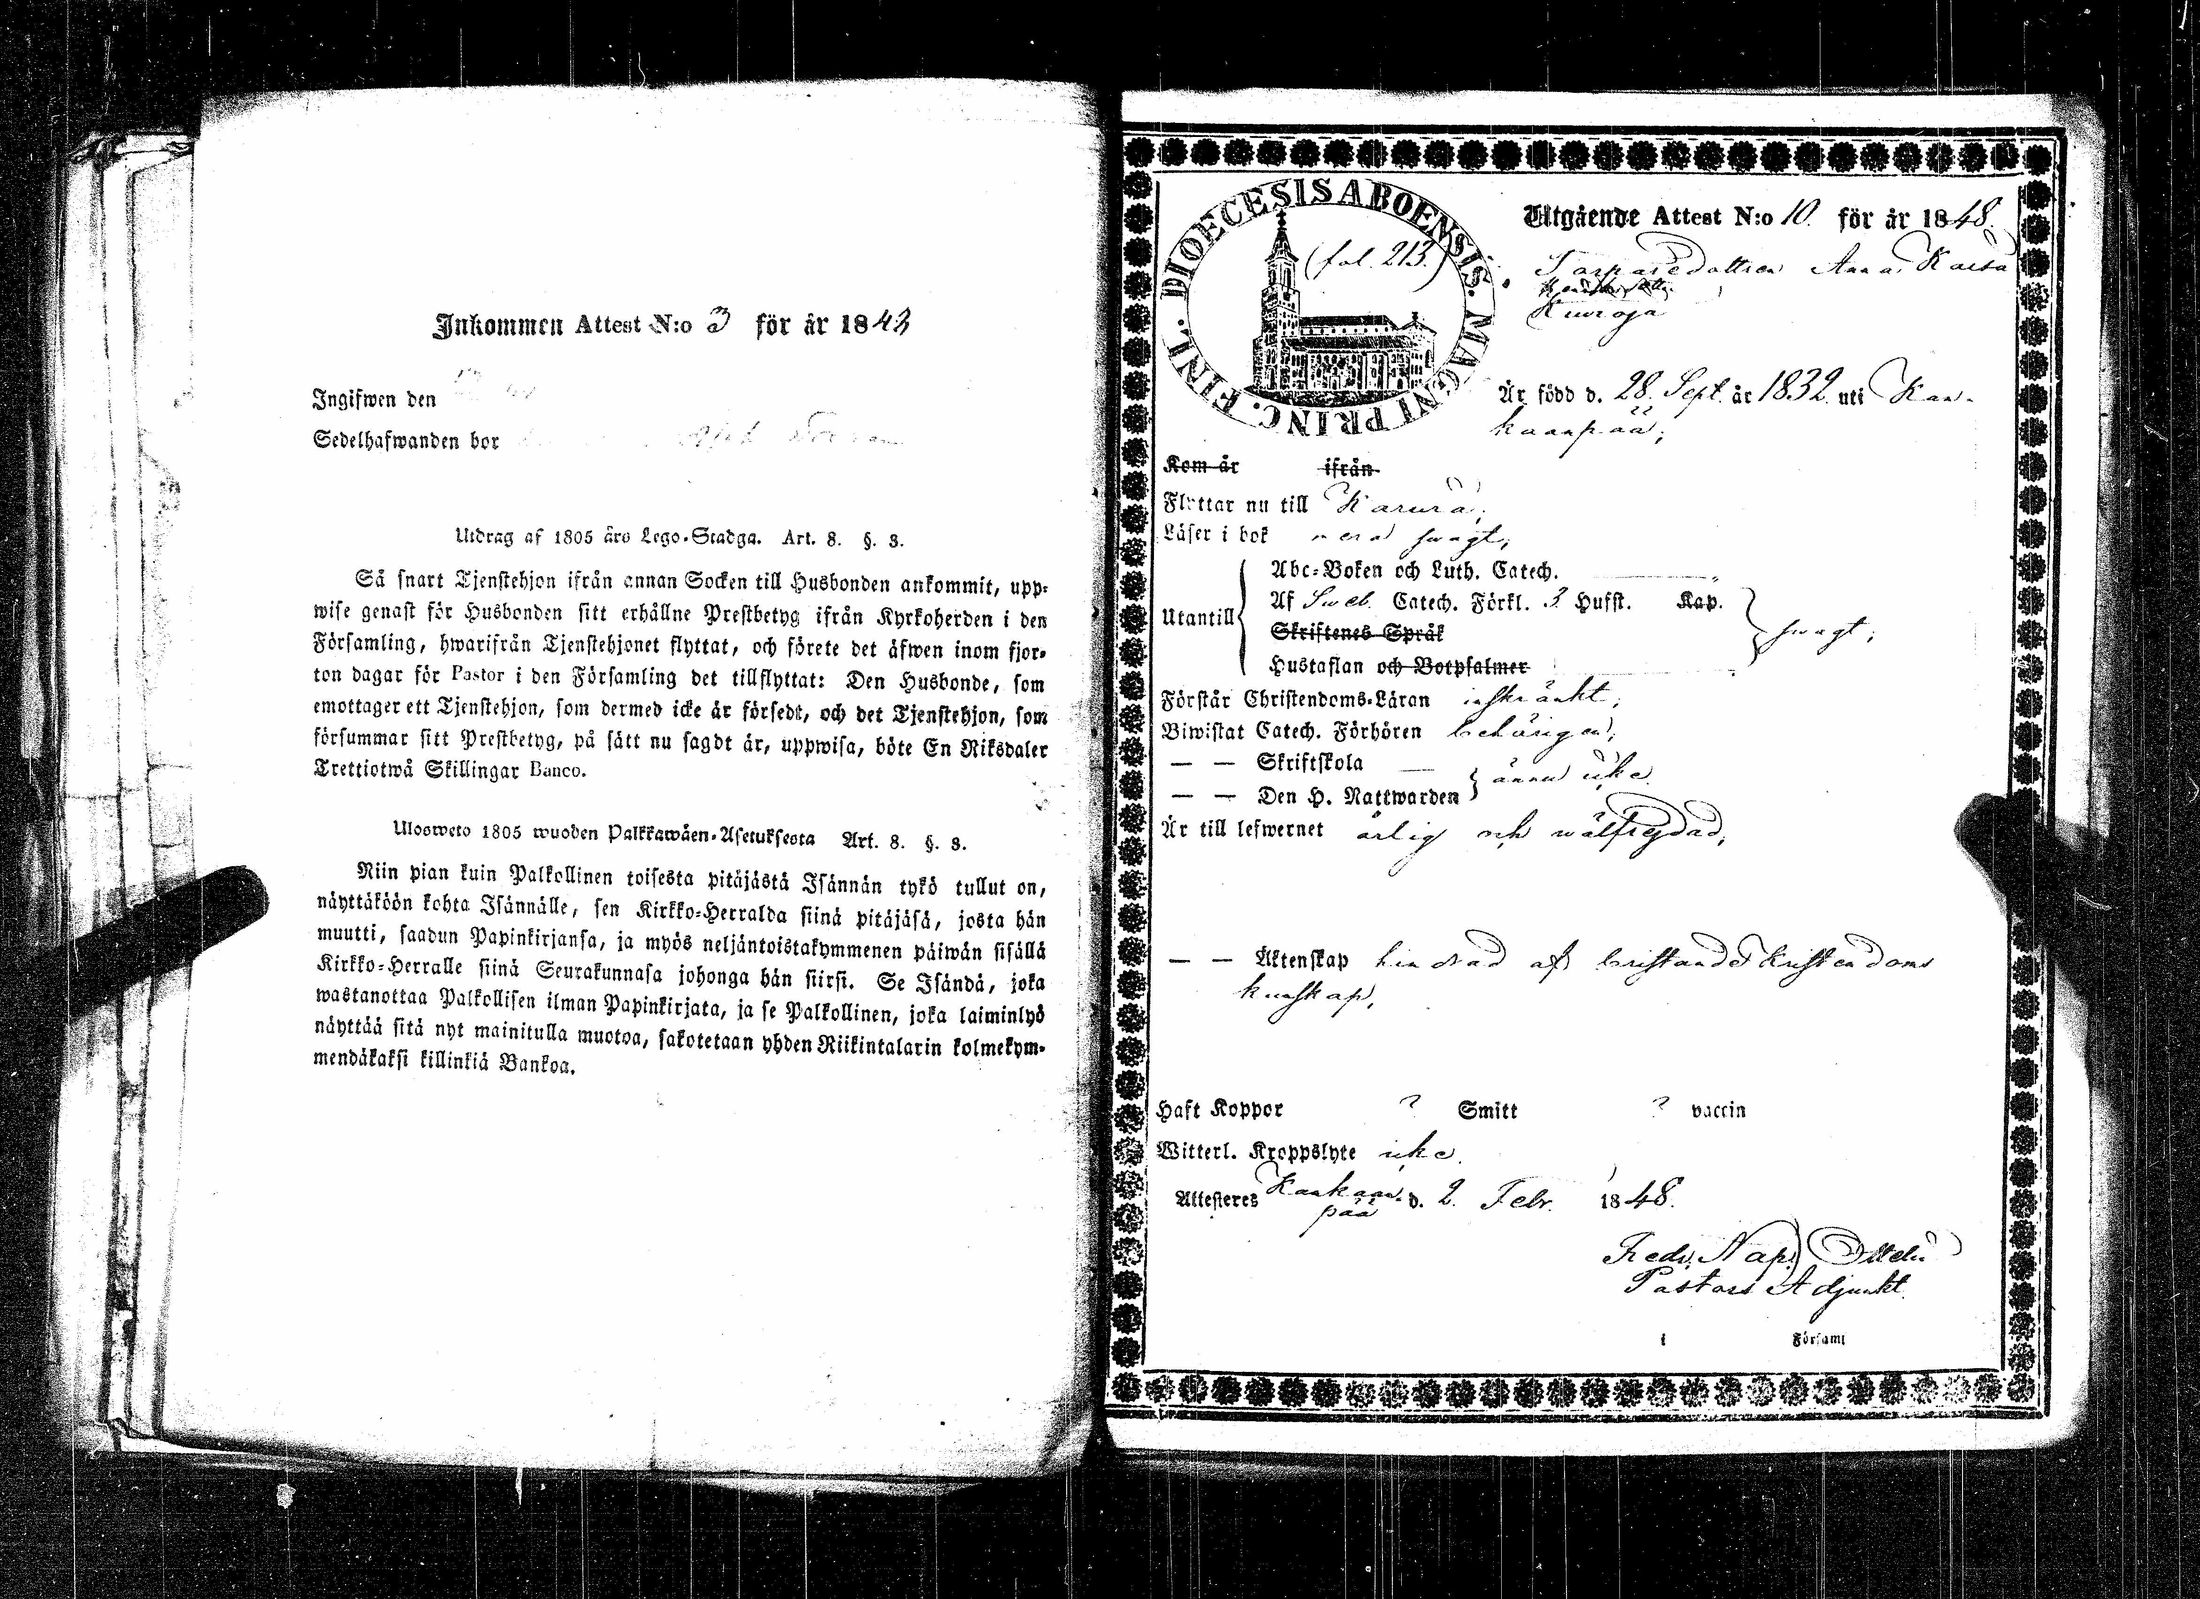 Inkommen Attest N:o 3 för år 1843
Ingifwen den
Sedelhafwanden bor
Utdrag af 1805 års Lego-Stadga. Art. 8. §. 3.
Så snart Tjenstehjon ifrån annan Socken till Husbonden ankommit, upp-
wise genast för Husbonden sitt erhållne Prestbetyg ifrån Kyrkoherden i den
Församling, hwarifrån Tjenstehjonet flyttat, och förete det äfwen inom fjor-
ton dagar för Pastor i den Församling det tillflyttat: Den Husbonde, som
emottager ett Tjenstehjon, som dermed icke är försedt, och det Tjenstehjon, som
försummar sitt Prestbetyg, på sätt nu sagdt är, uppwisa, böte En Riksdaler
Trettiotwå Skillingar Banco.
Ulosweto 1805 wuoden Palkkawäen-Asetuksesta Art. 8. §. 3.
Niin pian kuin Palkollinen toisesta pitäjästä Isännän tykö tullut on,
näyttäköön kohta Isännälle, sen Kirkko-Herralda siinä pitäjäsä, josta hän
muutti, saadun Papinkirjansa, ja myös neljäntoistakymmenen päiwän sisällä
Kirkko-Herralle siinä Seurakunnasa johonga hän siirsi. Se Isändä, joka
wastanottaa Palkollisen ilman Papinkirjata, ja se Palkollinen, joka laiminlyö
näyttää sitä nyt mainitulla muotoa, sakotetaan yhden Riikintalarin kolmekym-
mendäkaksi killinkiä Bankoa.
DIOECESIS ABOENSIS. MAGNI PRINC. FINL.
(fol. 213.)
Utgående Attest N:o 10. för år 1848.
Torparedottren Anna Kaisa
Är född d. 28. Sept. år 1832. uti Kan-
kaanpää;
Kom år ifrån
Flyttar nu till
Läser i bok swagt;
Utantill
Abc-Boken och Luth. Catech.
Af Sweb. Catech. Förkl. 3. Hufst. Kap.
Skriftenes Språk
swagt;
Hustaflan och Botpsalmer
Förstår Christendoms-Läran inskränkt;
Biwistat Catech. Förhören behörigen;
— — Skriftskola
ännu icke
— — Den H. Nattwarden
Är till lefwernet ärlig och wälfrejdad;
— — Äktenskap hindrad af bristande Kristendoms
kunskap;
Haft Koppor ? Smitt ? vaccin
Witterl. Kroppslyte icke.
Attesteres Kankaan-
pää d. 2. Febr. 1848.
Pastors Adjunkt.
i Församl